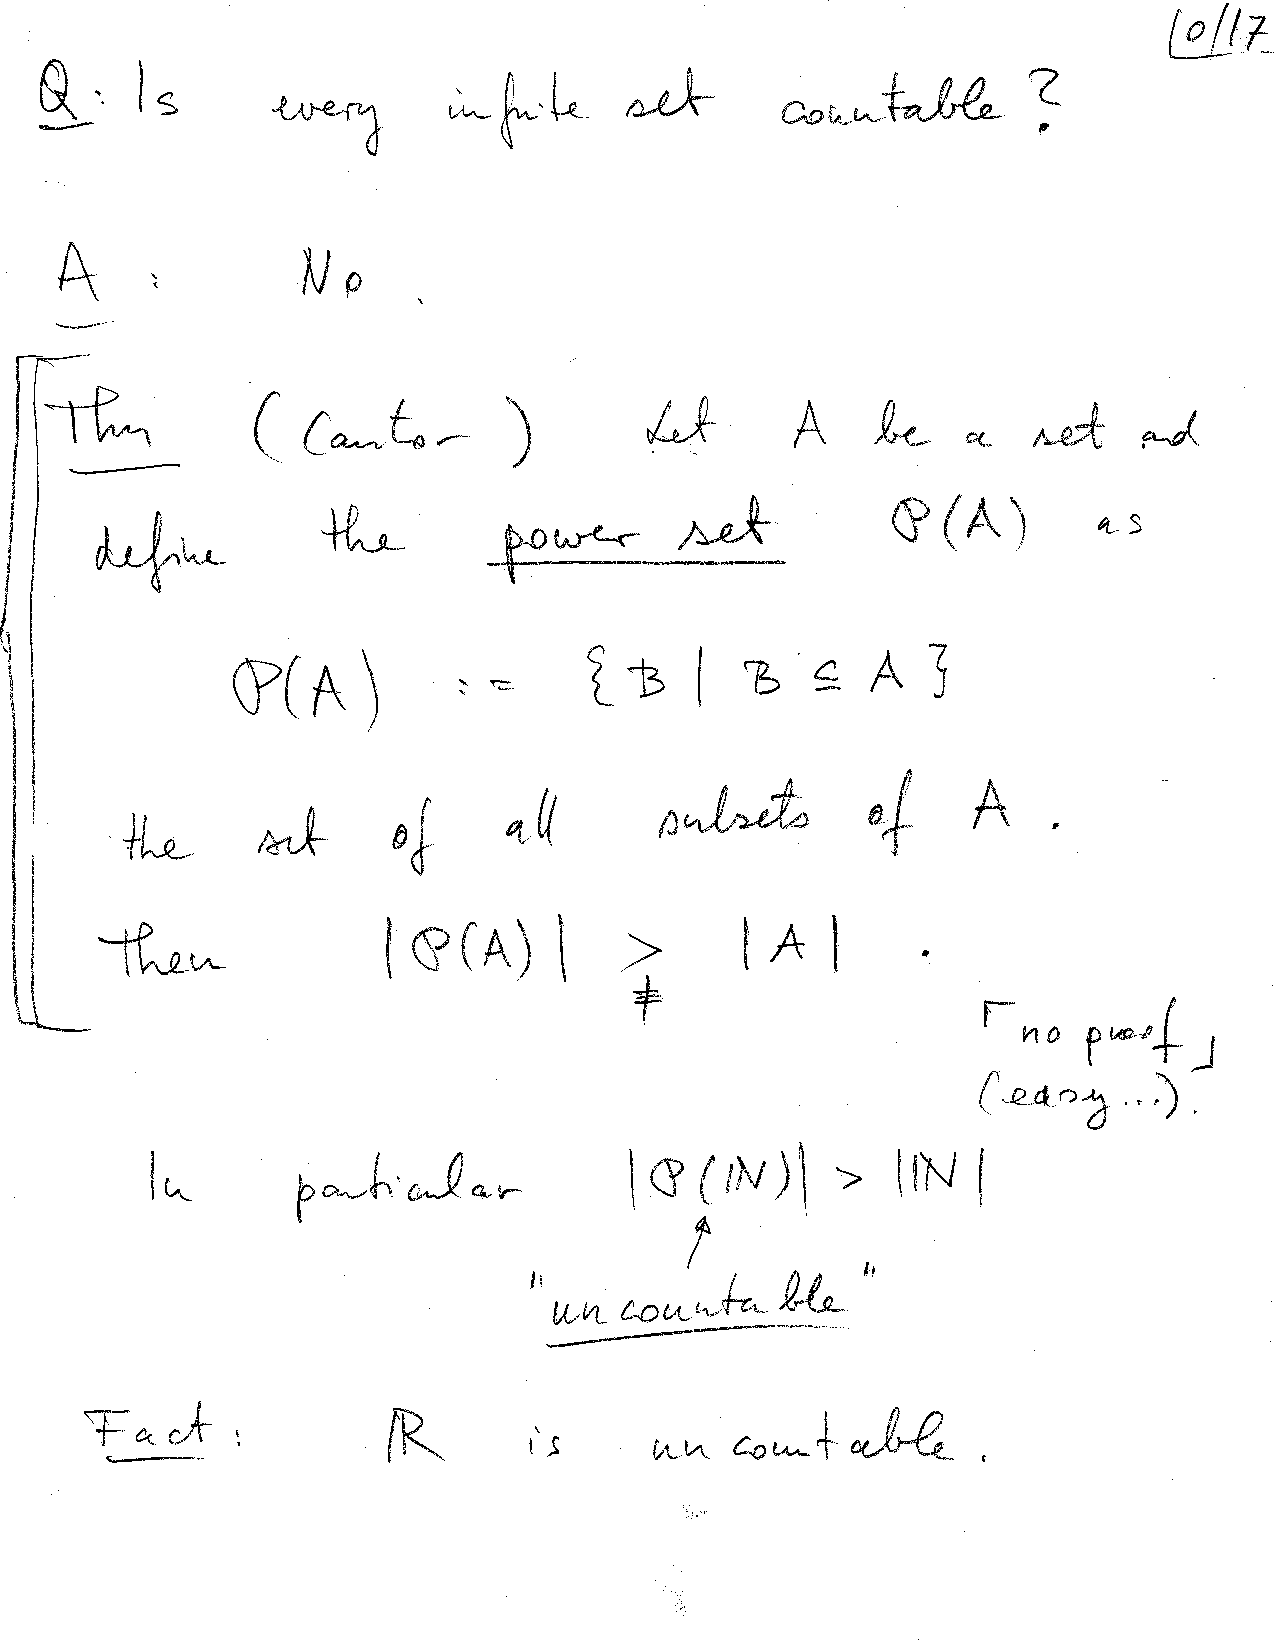 10/17
Q: Is every infinite set countable?
A: No.
Thm (Cantor) Let A be a set and
define the power set P(A) as
P(A) := {B | B ⊆ A}
the set of all subsets of A.
Then |P(A)| ≩ |A|.
⌈no proof⌋
(easy...).
In particular |P(ℕ)| > |ℕ|
↑
"uncountable"
Fact: ℝ is uncountable.